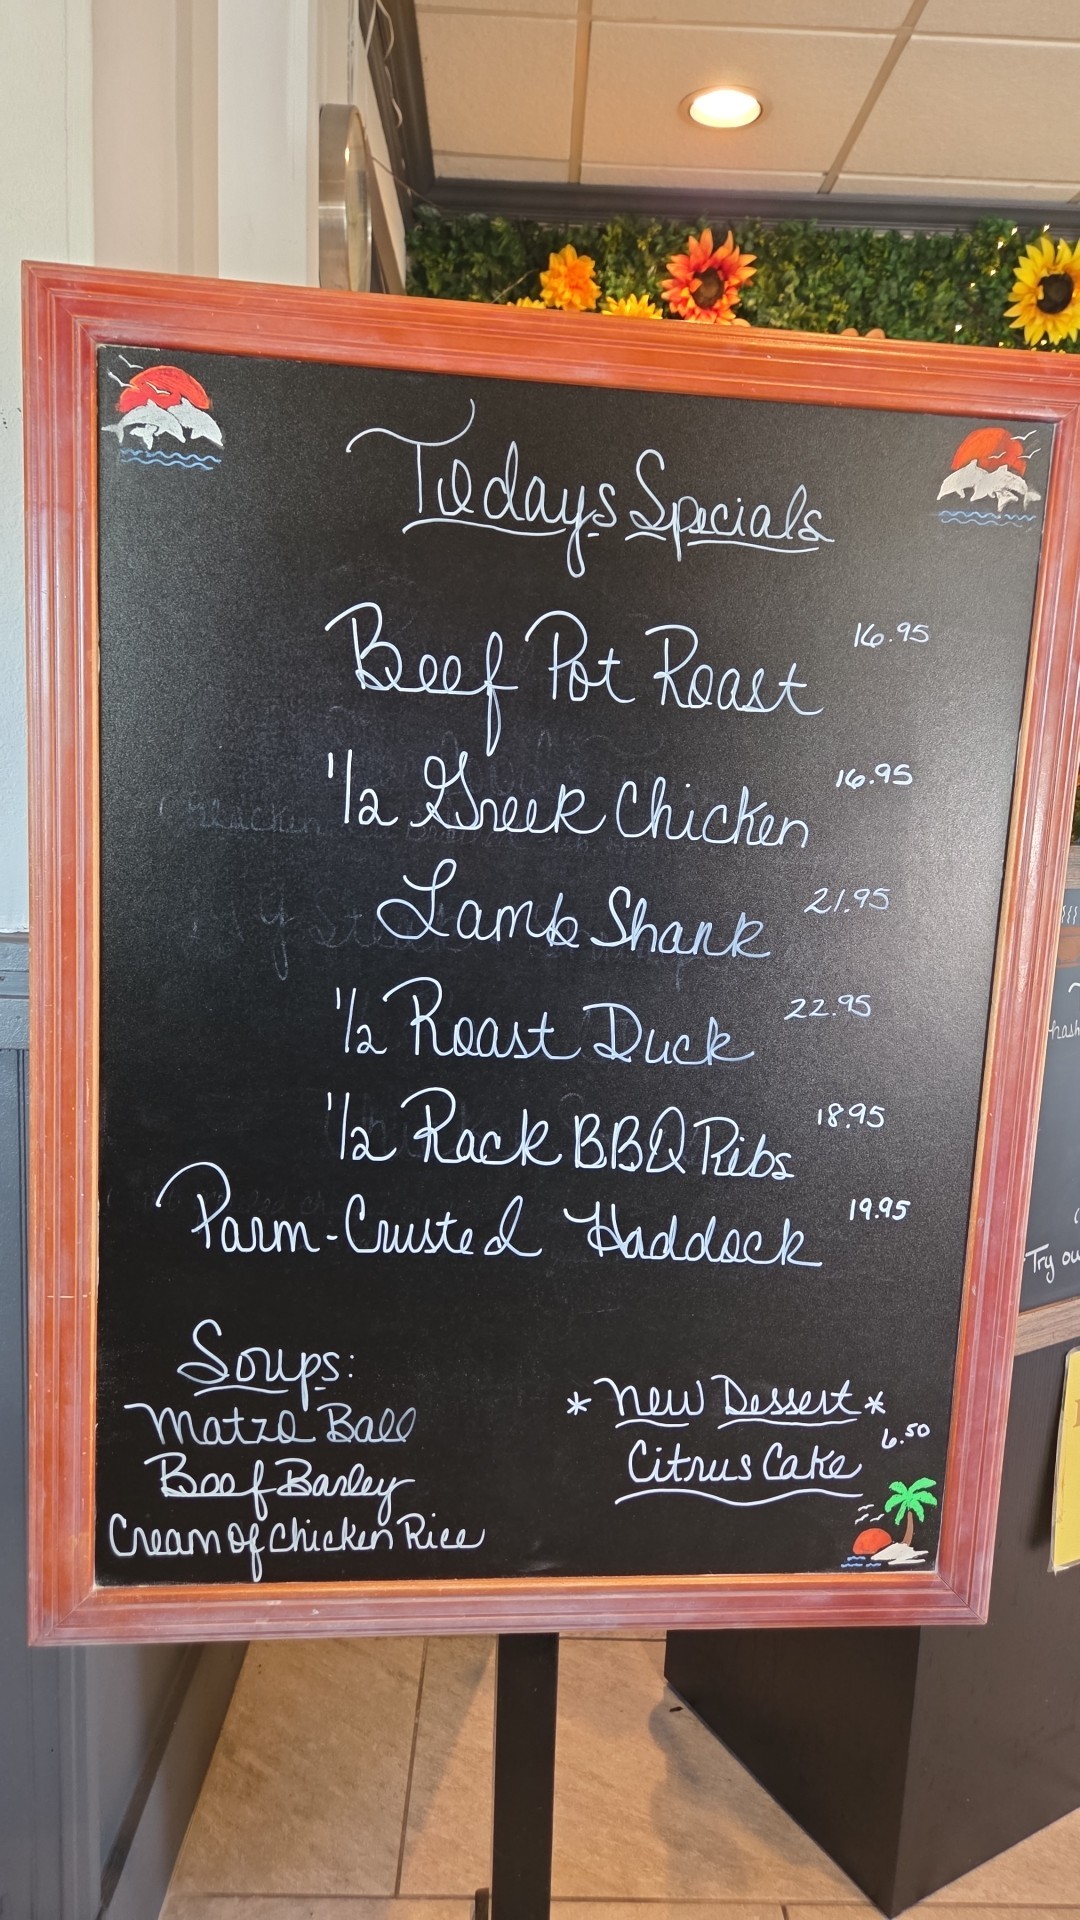 Todays Specials
Beef Pot Roast 16.95
1/2 Greek Chicken 16.95
Lamb Shank 21.95
1/2 Roast Duck 22.95
1/2 Rack BBQ Ribs 18.95
Parm-Crusted Haddock 19.95
Soups:
Matzo Ball
Beef Barley
Cream of Chicken Rice
* New Dessert *
Citrus Cake 6.50
Try